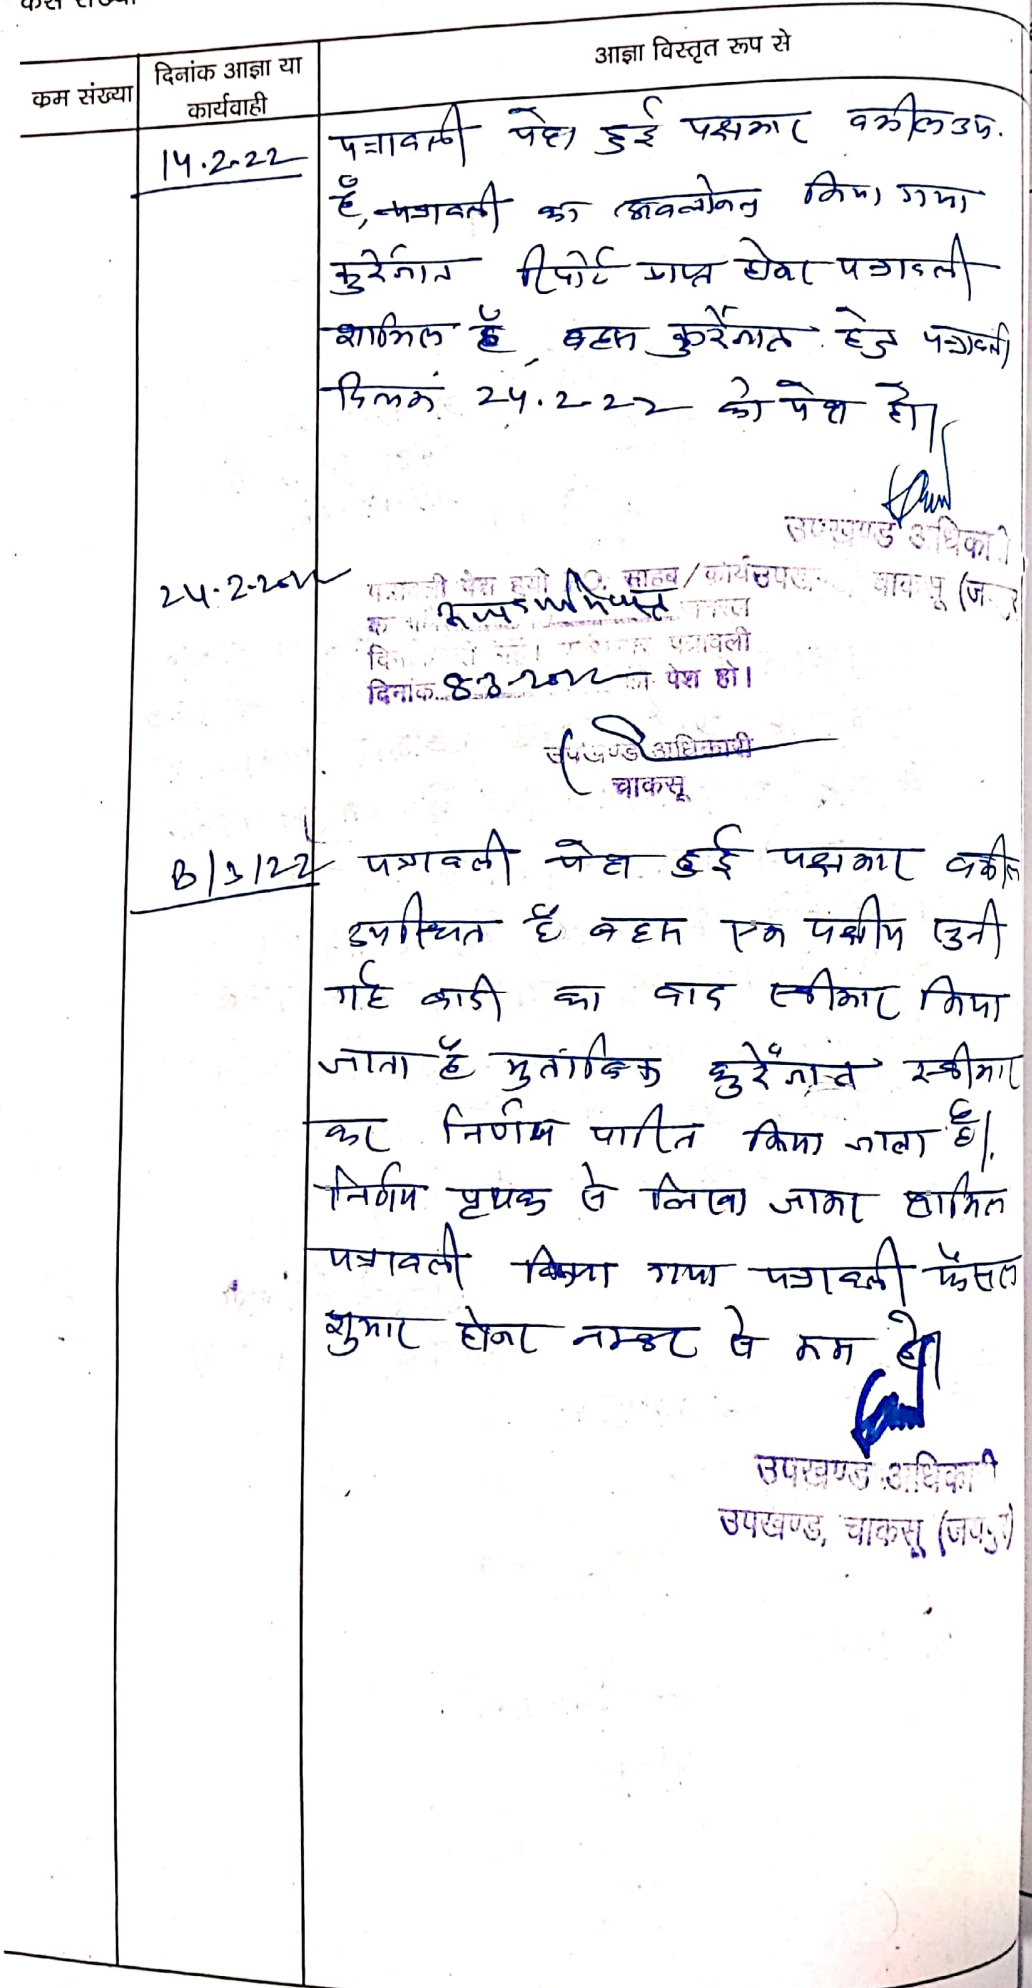 केस संख्या
कम संख्या
दिनांक आज्ञा या
कार्यवाही
आज्ञा विस्तृत रूप से
14.2.22
पत्रावली पेश हुई पक्षकार वकील उप.
है, पत्रावली का अवलोकन किया गया
कुर्रेजात रिपोर्ट प्राप्त होकर पत्रावली
शामिल है, बहस कुर्रेजात हेतु पत्रावली
दिनांक 24.2.22 को पेश हो।
उपखण्ड अधिकारी
चाकसू
24.2.2022
पेश हुयी साहब/कार्य
पत्रावली
दिनांक 8.3.2022 को पेश हो।
उपखण्ड अधिकारी
चाकसू
8/3/22
पत्रावली पेश हुई पक्षकार वकील
उपस्थित है बहस एक पक्षीय सुनी
गई वादी का वाद स्वीकार किया
जाता है मुताबिक कुर्रेजात स्वीकार
कर निर्णय पारित किया जाता है।
निर्णय पृथक से लिखा जाकर शामिल
पत्रावली किया गया पत्रावली फैसल
शुमार होकर नम्बर से कम हो।
उपखण्ड अधिकारी
उपखण्ड, चाकसू (जयपुर)